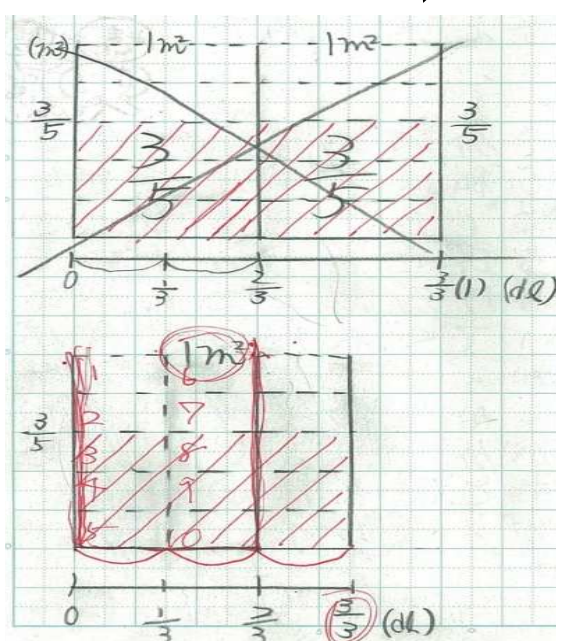 (m²) 1m² 1m²
3/5 3/5 3/5 3/5
0 1/3 2/3 3/3 (1) (dl)
1m²
1 6
2 7
3/5 3 8
4 9
5 0
0 1/3 2/3 3/3 (dl)